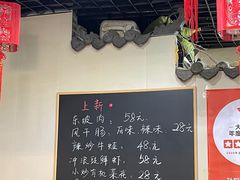 上新
东坡肉，58元
风干肠，百味、辣味、28元
辣炒牛蛙，48元
冲浪活鲜虾，58元
小炒有机菜花，28元
大
年度